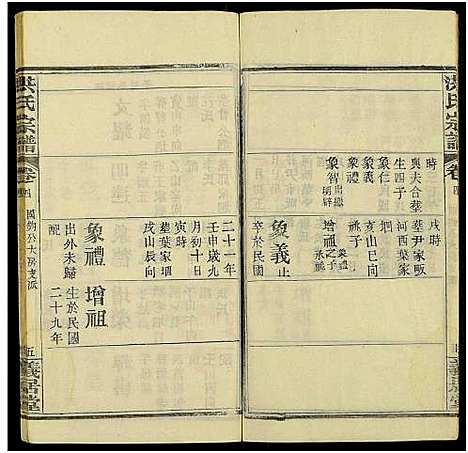 洪氏宗譜
卷
時
與夫合塟
生四子
象仁
象義
象禮
象智
出繼
明辟
戌時
塟尹家畈
河西葉家
垻
亥山巳向
祧子
象禮
之子
增祖
承祧
象義
止
卒於民國
二十一年
壬申歲九
月初十日
寅時
塟葉家垻
戌山辰向
象禮
出外未歸
配
增祖
生於民國
二十九年
洪氏宗譜
卷四
國鈞公大房支派
五
義居堂